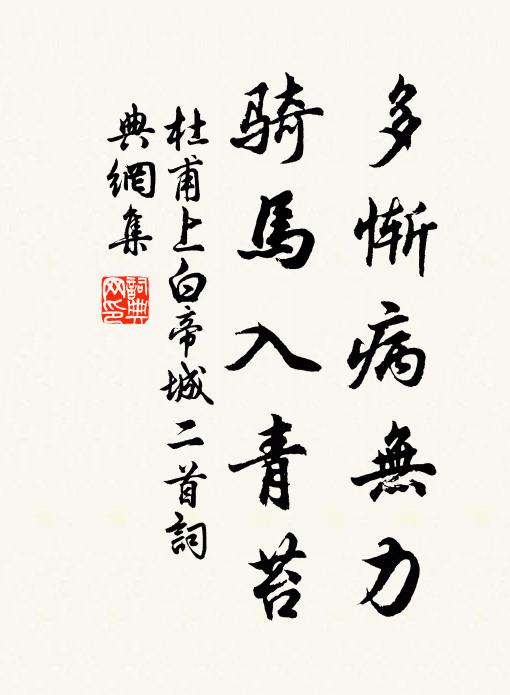 多慚病無力
騎馬入青苔
杜甫上白帝城二首詞
典網集
詞典网印